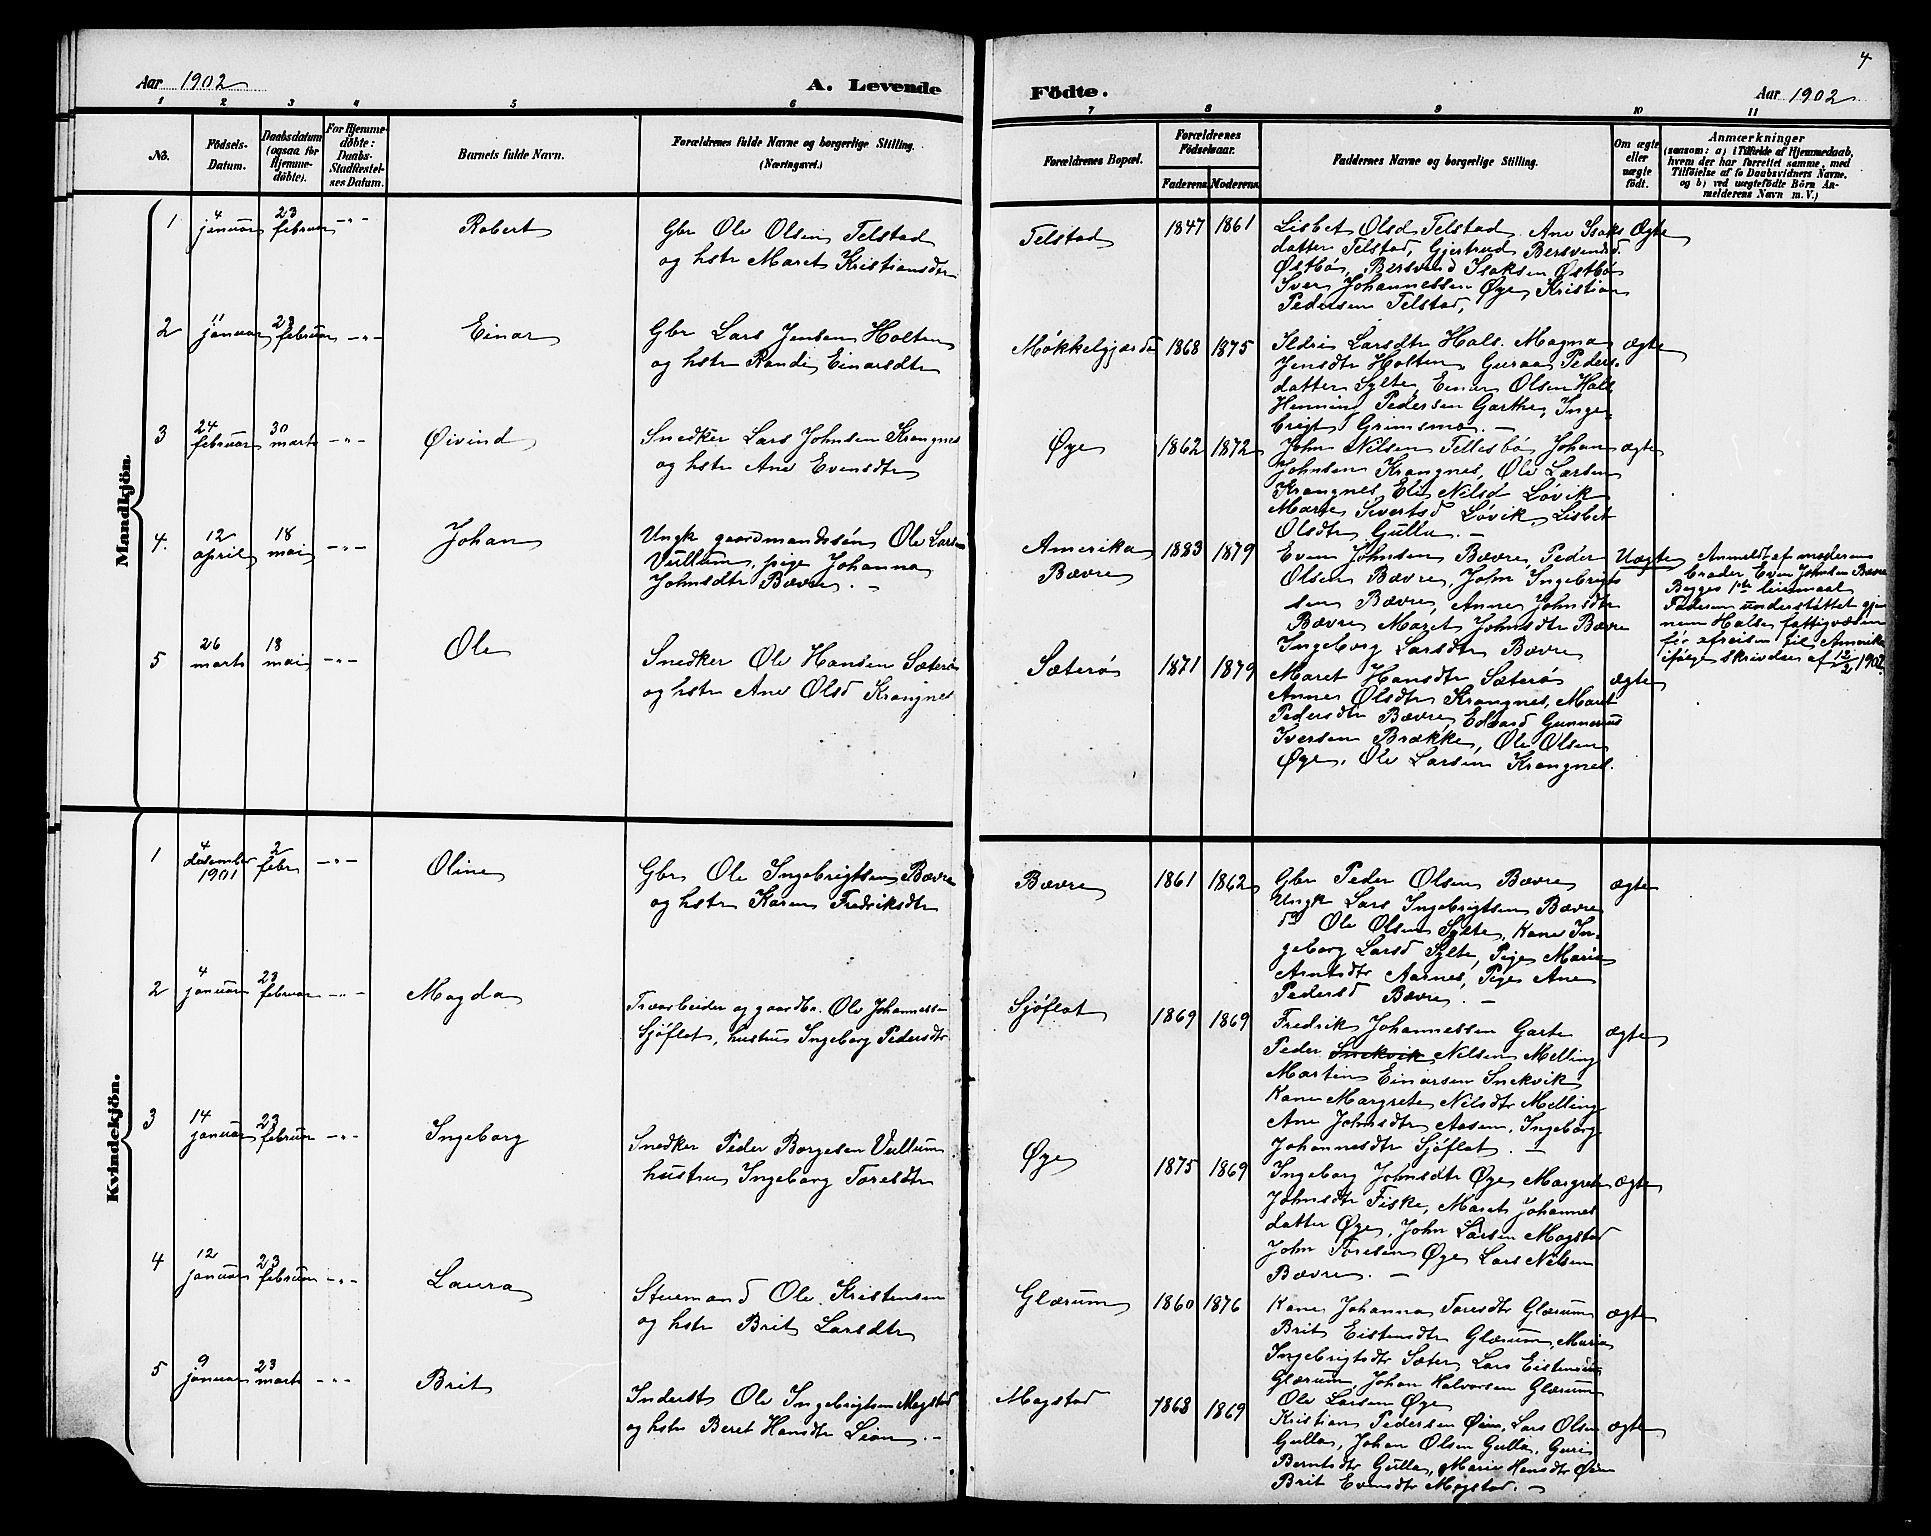 4
Aar 1902
A. Levende
Födte.
Aar 1902
1 2 3 4 5 6 7 8 9 10 11
No.
Födsels-
Datum.
Daabsdatum
(ogsaa for
Hjemme-
döbte).
For Hjemme-
döbte:
Daabs-
Stadfæstel-
ses Datum.
Barnets fulde Navn.
Forældrenes fulde Navne og borgerlige Stilling.
(Næringsvei.)
Forældrenes Bopæl.
Forældrenes
Födselsaar.
Faderens. Moderens.
Faddernes Navne og borgerlige Stilling.
Om ægte
eller
uægte
født.
Anmærkninger
(saasom: a) i Tilfælde af Hjemmedaab,
hvem der har forrettet samme, med
Tilföielse af to Daabsvidners Navne.
og b) ved uægtefödte Börn An-
melderens Navn m. V.)
Mandkjön.
1
4
januar
23
februar
-"-
Robert
Gbr Ole Olsen Telstad
og hstr Maret Kristiansdtr
Telstad
1847 1861
Lisbet Olsd Telstad, Ane Isaks
datter Telstad, Gjertrud Bersvendsd.
Østbø, Bersvend Isaksen Østbø
Iver Johannessen Øye, Kristian
Pedersen Telstad,
Ægte
2
11
januar
23
februar
-"-
Einar
Gbr Lars Jensen Holten
og hstr Randi Einarsdtr
Møkkelgjerde
1868 1875
Ildri Larsdtr Hals. Magna
Jensdtr Holten, Guraa Peders-
datter Sylte, Einar Olsen Hall
Henning Pedersen Garthe, Inge-
brigt Grimsmo. -
ægte
3
24
februar
30
marts
-"-
Øivind
Snedker Lars Johnsen Krangnes
og hstr Ane Evensdtr
Øye
1862 1872
John Nilsen Tellesbø, Johan
Johnsen Krangnes, Ole Larsen
Krangnes, Eli Nilsd Løvik
Marte Sivertsd Løvik, Lisbet
Olsdtr Gulla. -
ægte
4.
12
april
18
mai
-"-
Johan
Ungk gaardmandssøn Ole Larsen
Vullum, pige Johanna
Johnsdtr Bævre. -
Amerika
Bævre
1883 1879
Even Johnsen Bævre, Peder
Olsen Bævre, John Ingebrigt
sen Bævre, Anne Johnsdtr
Bævre, Maret Johnsdtr Bævre
Ingeborg Larsdtr Bævre
Uægte
Anmeldt af moderens
broder Even Johnsen Bævre
Begges 1ste leiermaal
Faderen understøttet gjen
nem Halse fattigvæsen
før afreisen til Amerika
ifølge skrivelse af 12/2 1902.
5
26
marts
18
mai
-"-
Ole
Snedker Ole Hansen Sæterø
og hstr Ane Olsd Krangnes
Sæterø
1871 1879
Maret Hansdtr Sæterø
Anne Olsdtr Krangnes, Maret
Pedersdtr Bævre, Edvard Gunnerius
Iversen Brække, Ole Olsen
Øye, Ole Larsen Krangnes.
ægte
Kvindekjön.
1
4
desember
1901
2
febr
-"-
Oline
Gbr Ole Ingebrigtsen Bævre
og hstr Karen Fredriksdtr
Bævre
1861 1862
Gbr Peder Olsen Bævre
Ungk Lars Ingebrigtsen Bævre
do Ole Olsen Sylte, Kone In-
geborg Larsd Sylte, Pige Maria
Arntsdtr Aarnes, Pige Ane
Pedersd Bævre. -
ægte
2
4
januar
23
februar
-"-
Magda
Træarbeider og gaardbr. Ole Johannessen
Sjøflot, hustru Ingeborg Pedersdtr
Sjøflot
1869 1869
Fredrik Johannessen Garte
Peder Snekvik Nilsen Melling
Martin Einarsen Snekvik
Kone Margrete Nilsdtr Melling
Ane Johnsdtr Aasen, Ingeborg
Johannesdtr Sjøflot. -
ægte
3
14
januar
23
februar
-"-
Ingeborg
Snedker Peder Borgesen Vullum
hustru Ingeborg Toresdtr
Øye
1875 1869
Ingeborg Johnsdtr Øye, Margrete
Johnsdtr Fiske, Maret Johannes
datter Øye, John Larsen Mogstad
John Toresen Øye, Lars Nilsen
Bævre. -
ægte
4
12
januar
23
februar
-"-
Laura
Stuemand Ole Kristensen
og hstr Brit Larsdtr
Glærum
1860 1876
Kone Johanna Toresdtr Glærum
Brit Eistensdtr Glærum, Maria
Ingebrigtsdtr Sæter, Lars Eistensen
Glærum, Johan Halvorsen Glærum
Ole Larsen Øye
ægte
5
9
januar
23
marts
-"-
Brit
Inderst Ole Ingebrigtsen Mogstad
og hstr Beret Hansdtr Lien. -
Mogstad
1868 1869
Kristian Pedersen Øien, Lars Olsen
Gulla, Johan Olsen Gulla, Guri
Berntsdtr Gulla, Marie Hansdtr Øien
Brit Evensdtr Mogstad. -
ægte